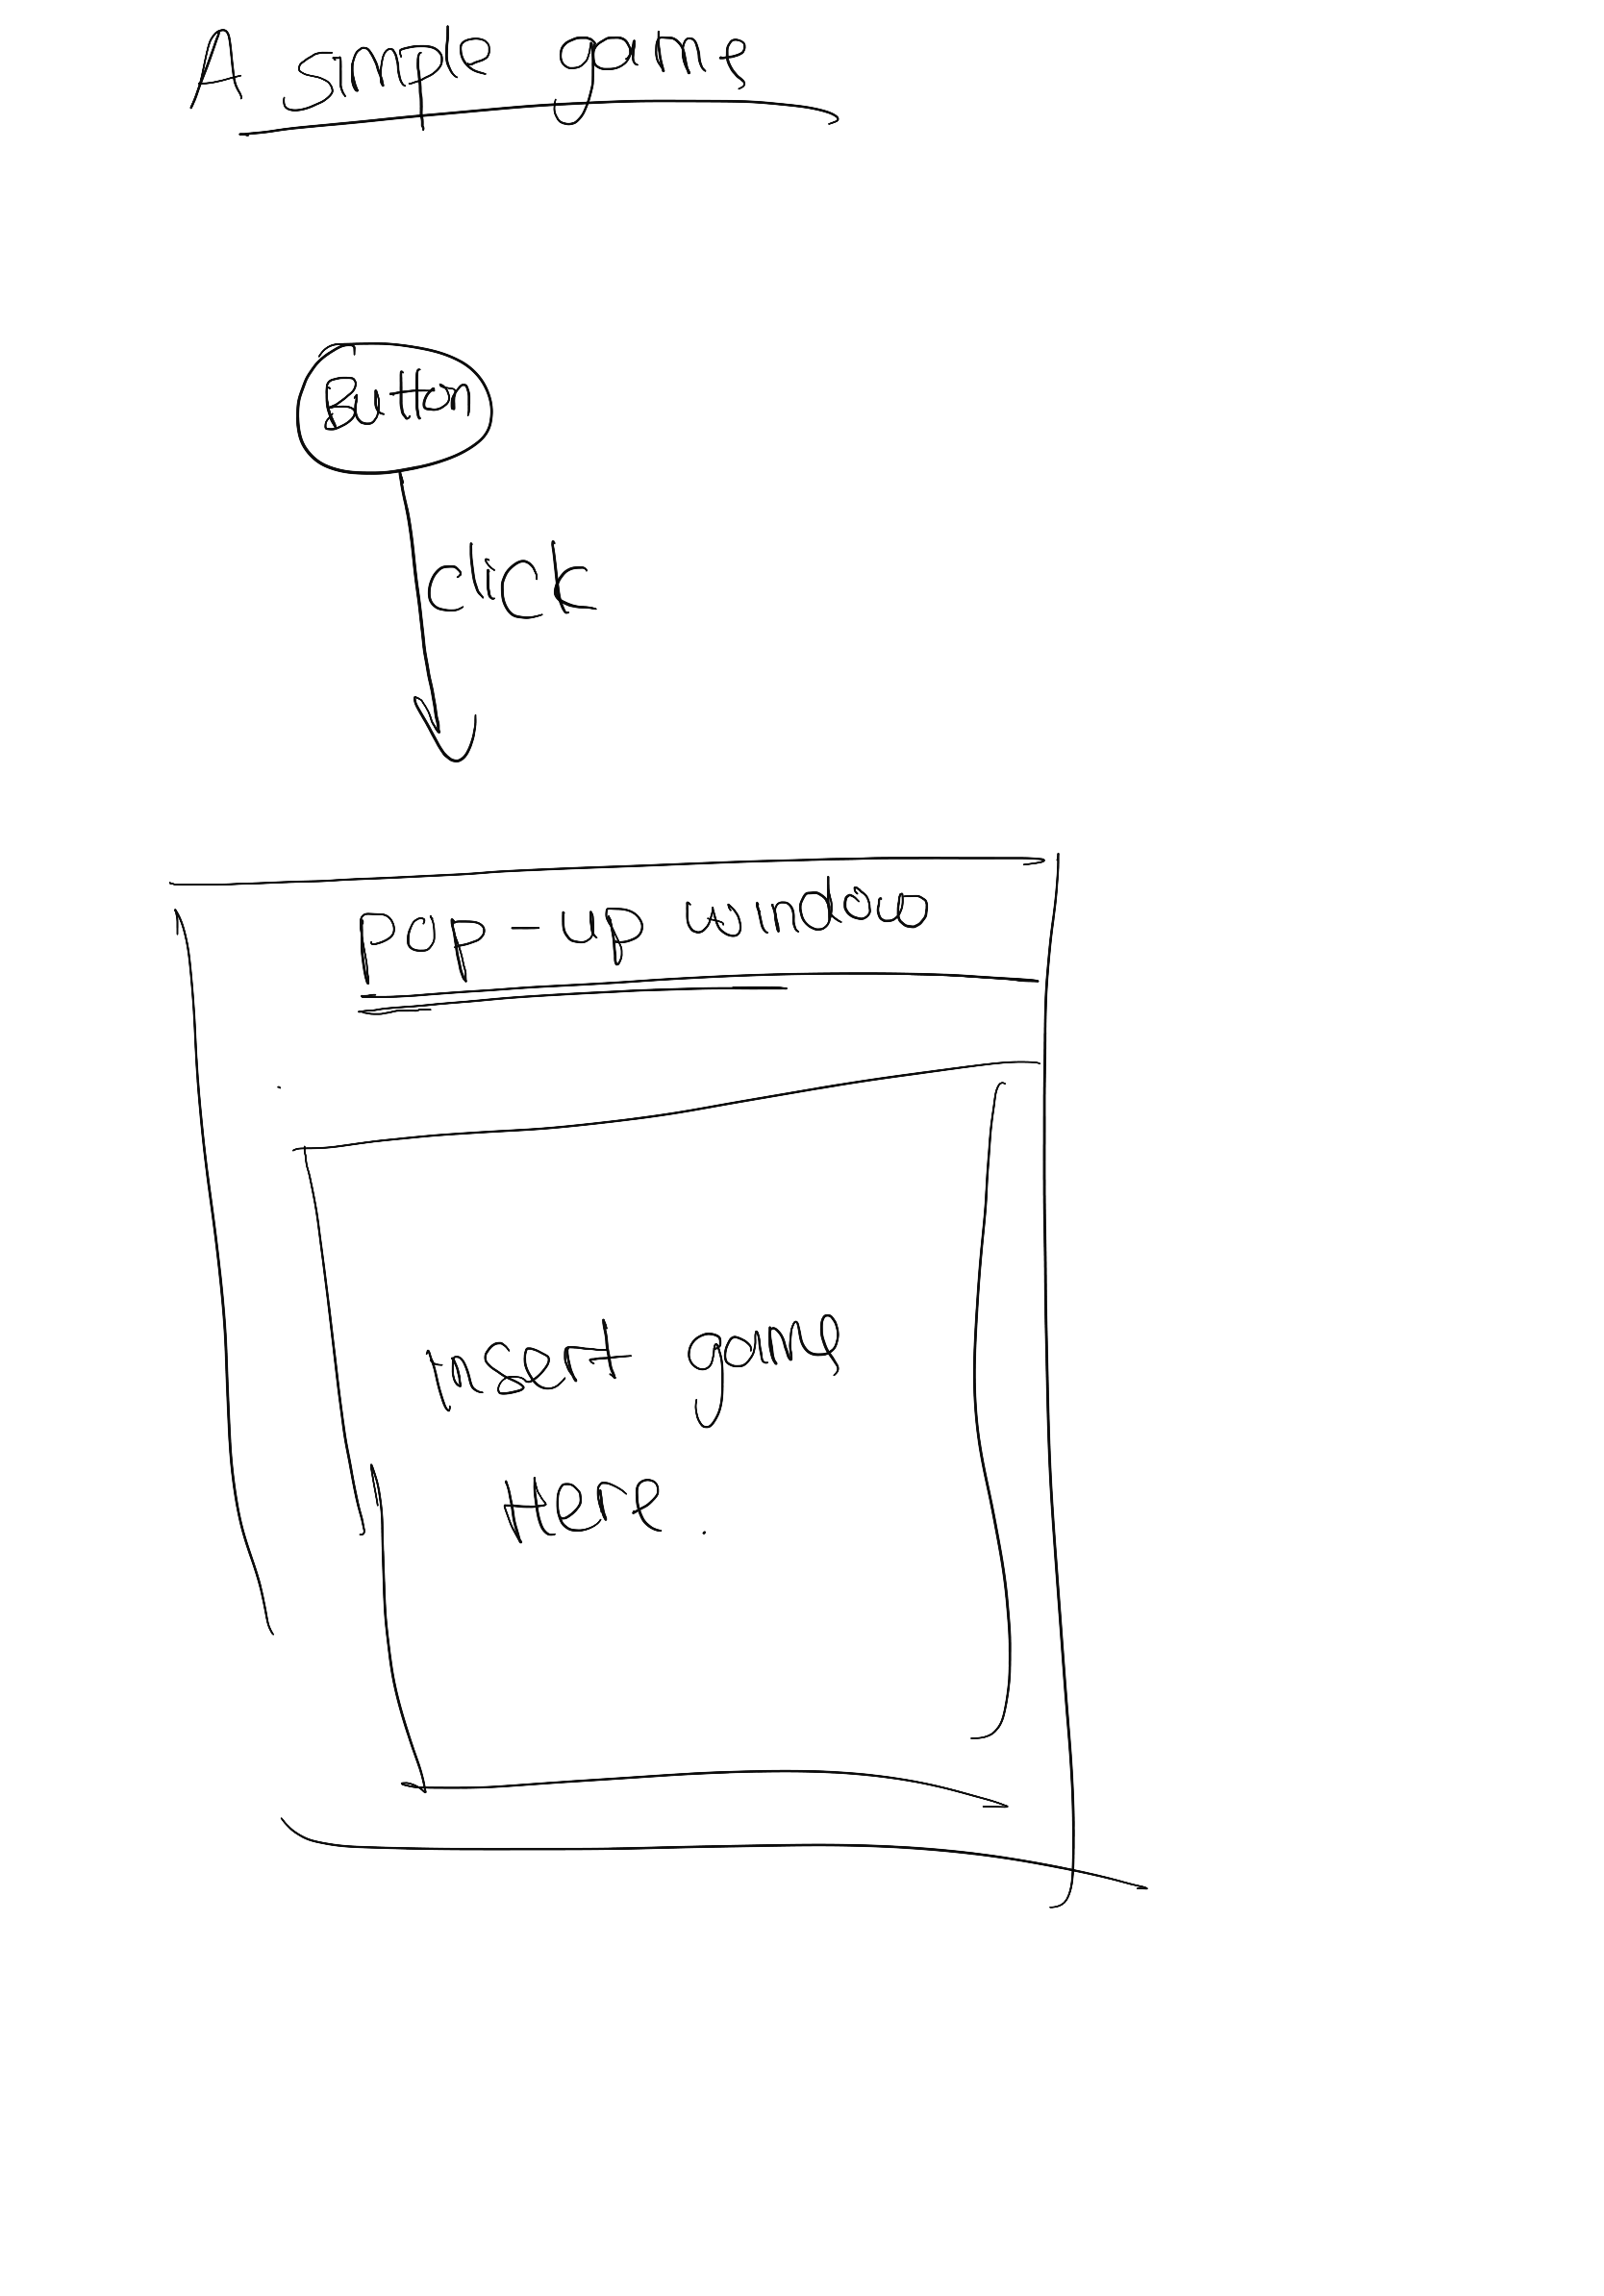 A simple game
Button
click
pop-up window
insert game
Here.